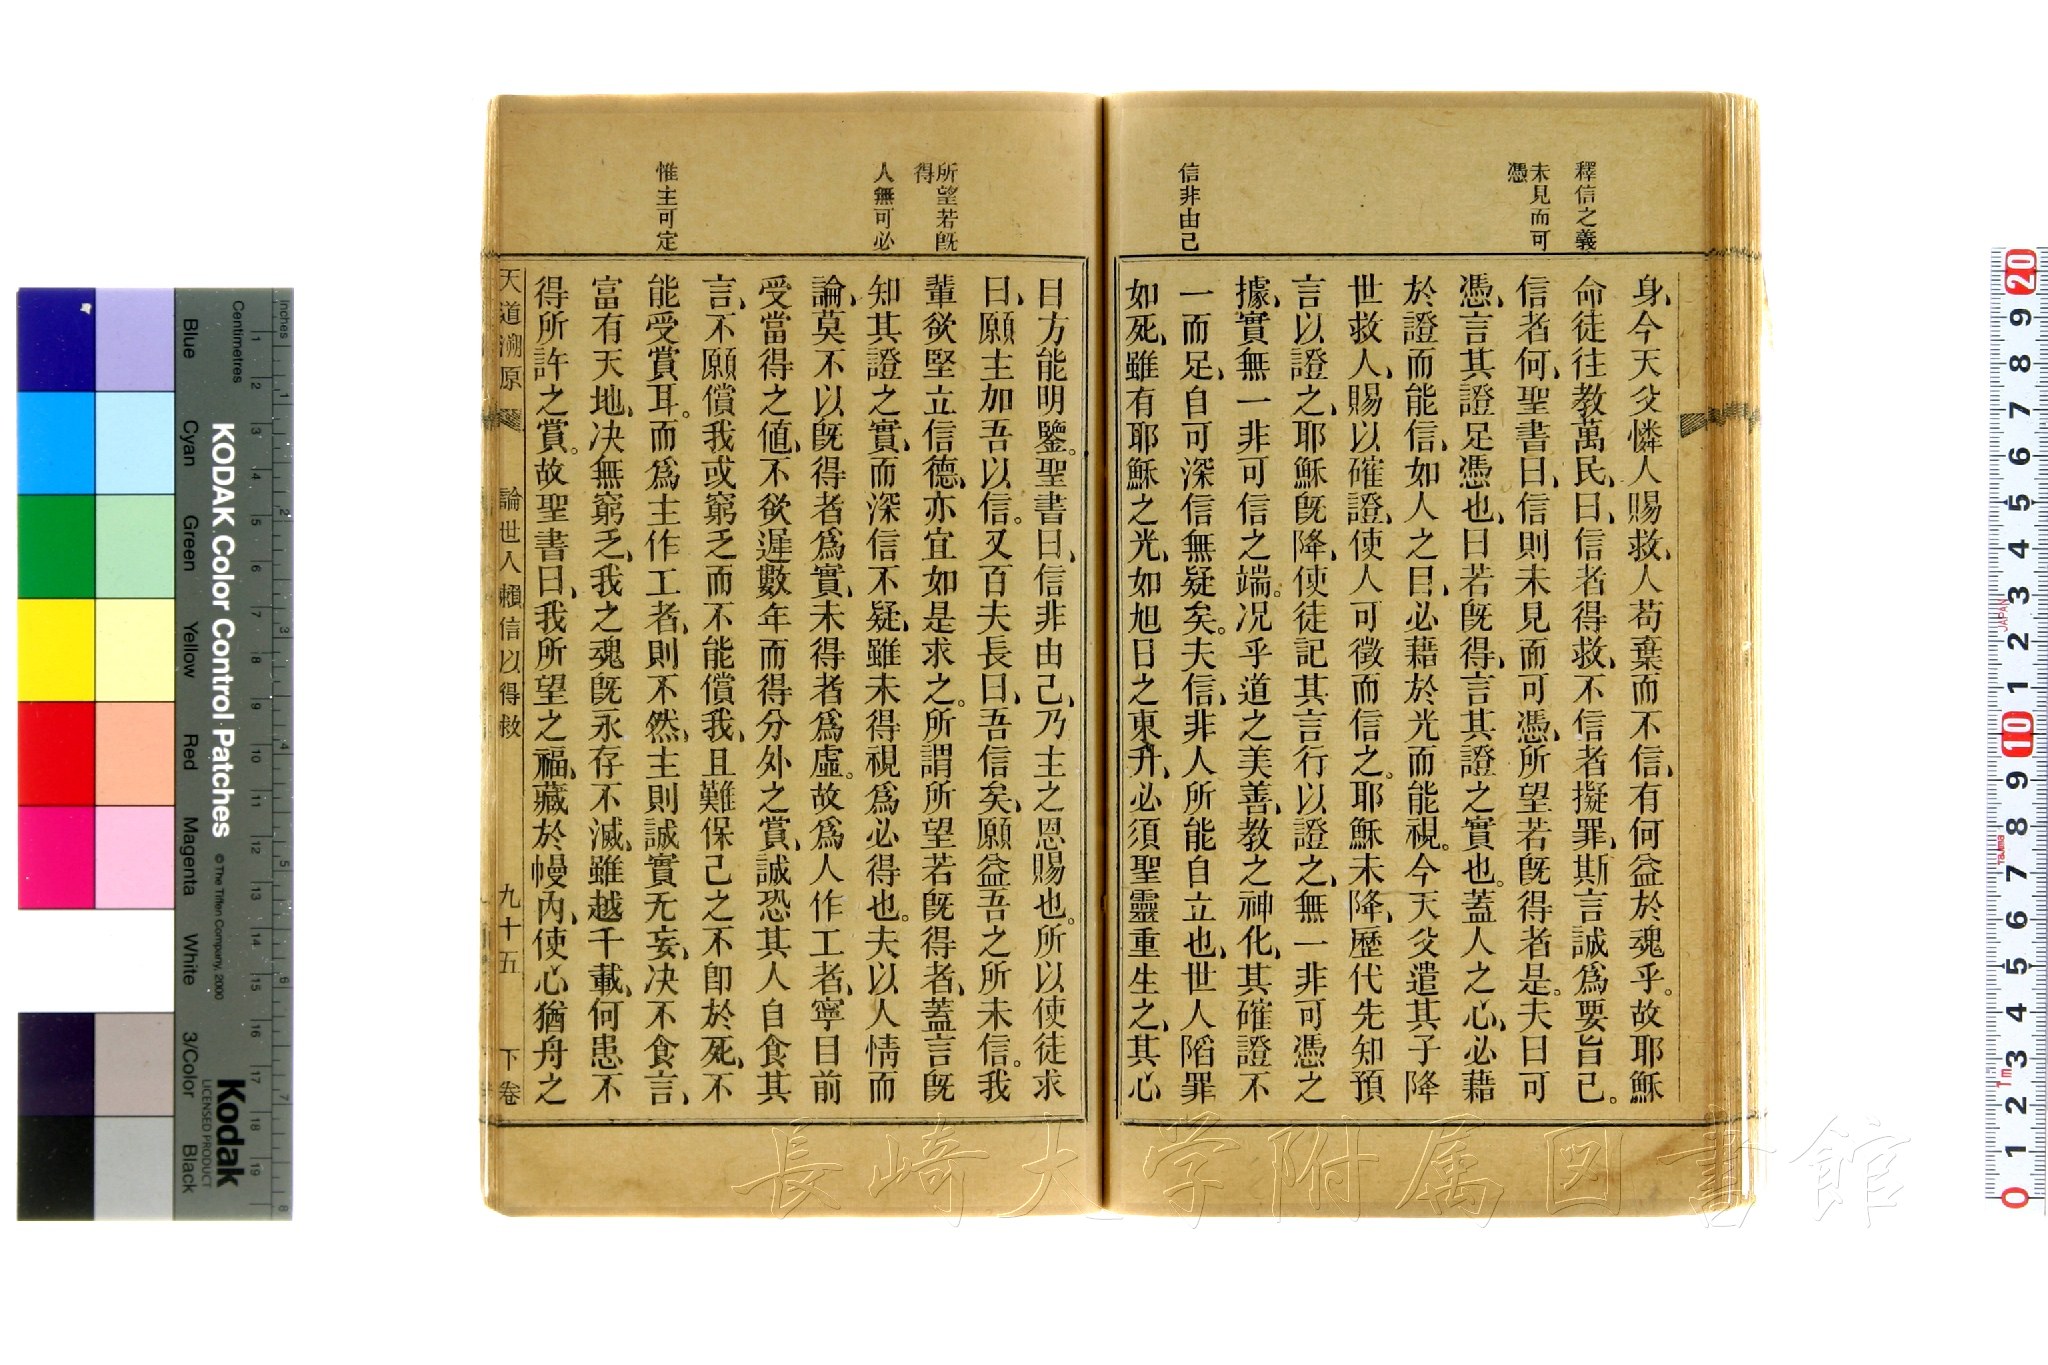 釋信之義
未見而可
憑
信非由己
身、今天父憐人賜救、人苟棄而不信、有何益於魂乎。故耶穌
命徒往教萬民、曰、信者得救、不信者擬罪、斯言誠爲要旨已。
信者何、聖書曰、信則未見而可憑、所望若旣得者是。夫曰可
憑、言其證足憑也、曰若旣得、言其證之實也。蓋人之心、必藉
於證而能信、如人之目、必藉於光而能視。今天父遣其子降
世救人、賜以確證、使人可徵而信之。耶穌未降、歷代先知預
言以證之、耶穌旣降、使徒記其言行以證之、無一非可憑之
據、實無一非可信之端。况乎道之美善、教之神化、其確證不
一而足、自可深信無疑矣。夫信、非人所能自立也、世人陷罪
如死、雖有耶穌之光、如旭日之東升、必須聖靈重生之、其心
所望若旣
得
人無可必
惟主可定
目方能明鑒。聖書曰、信非由己、乃主之恩賜也。所以使徒求
曰、願主加吾以信。又百夫長曰、吾信矣、願益吾之所未信。我
輩欲堅立信德、亦宜如是求之。所謂所望若旣得者、蓋言旣
知其證之實、而深信不疑、雖未得視爲必得也。夫以人情而
論、莫不以旣得者爲實、未得者爲虛。故爲人作工者、寧目前
受當得之値、不欲遲數年而得分外之賞、誠恐其人自食其
言、不願償我、或窮乏而不能償我、且難保己之不卽於死、不
能受賞耳。而爲主作工者、則不然、主則誠實无妄、决不食言、
富有天地、决無窮乏、我之魂旣永存不滅、雖越千載、何患不
得所許之賞。故聖書曰、我所望之福、藏於幔內、使心猶舟之
天道溯原 論世人賴信以得救 九十五 下卷
Inches
Centimetres
1 2 3 4 5 6 7 8
1 2 3 4 5 6 7 8 9 10 11 12 13 14 15 16 17 18 19
Blue Cyan Green Yellow Red Magenta White 3/Color Black
KODAK Color Control Patches
© The Tiffen Company, 2000
Kodak
LICENSED PRODUCT
20 9 8 7 6 5 4 3 2 1 10 9 8 7 6 5 4 3 2 1 0
JAPAN
Tajima
長崎大学附属図書館